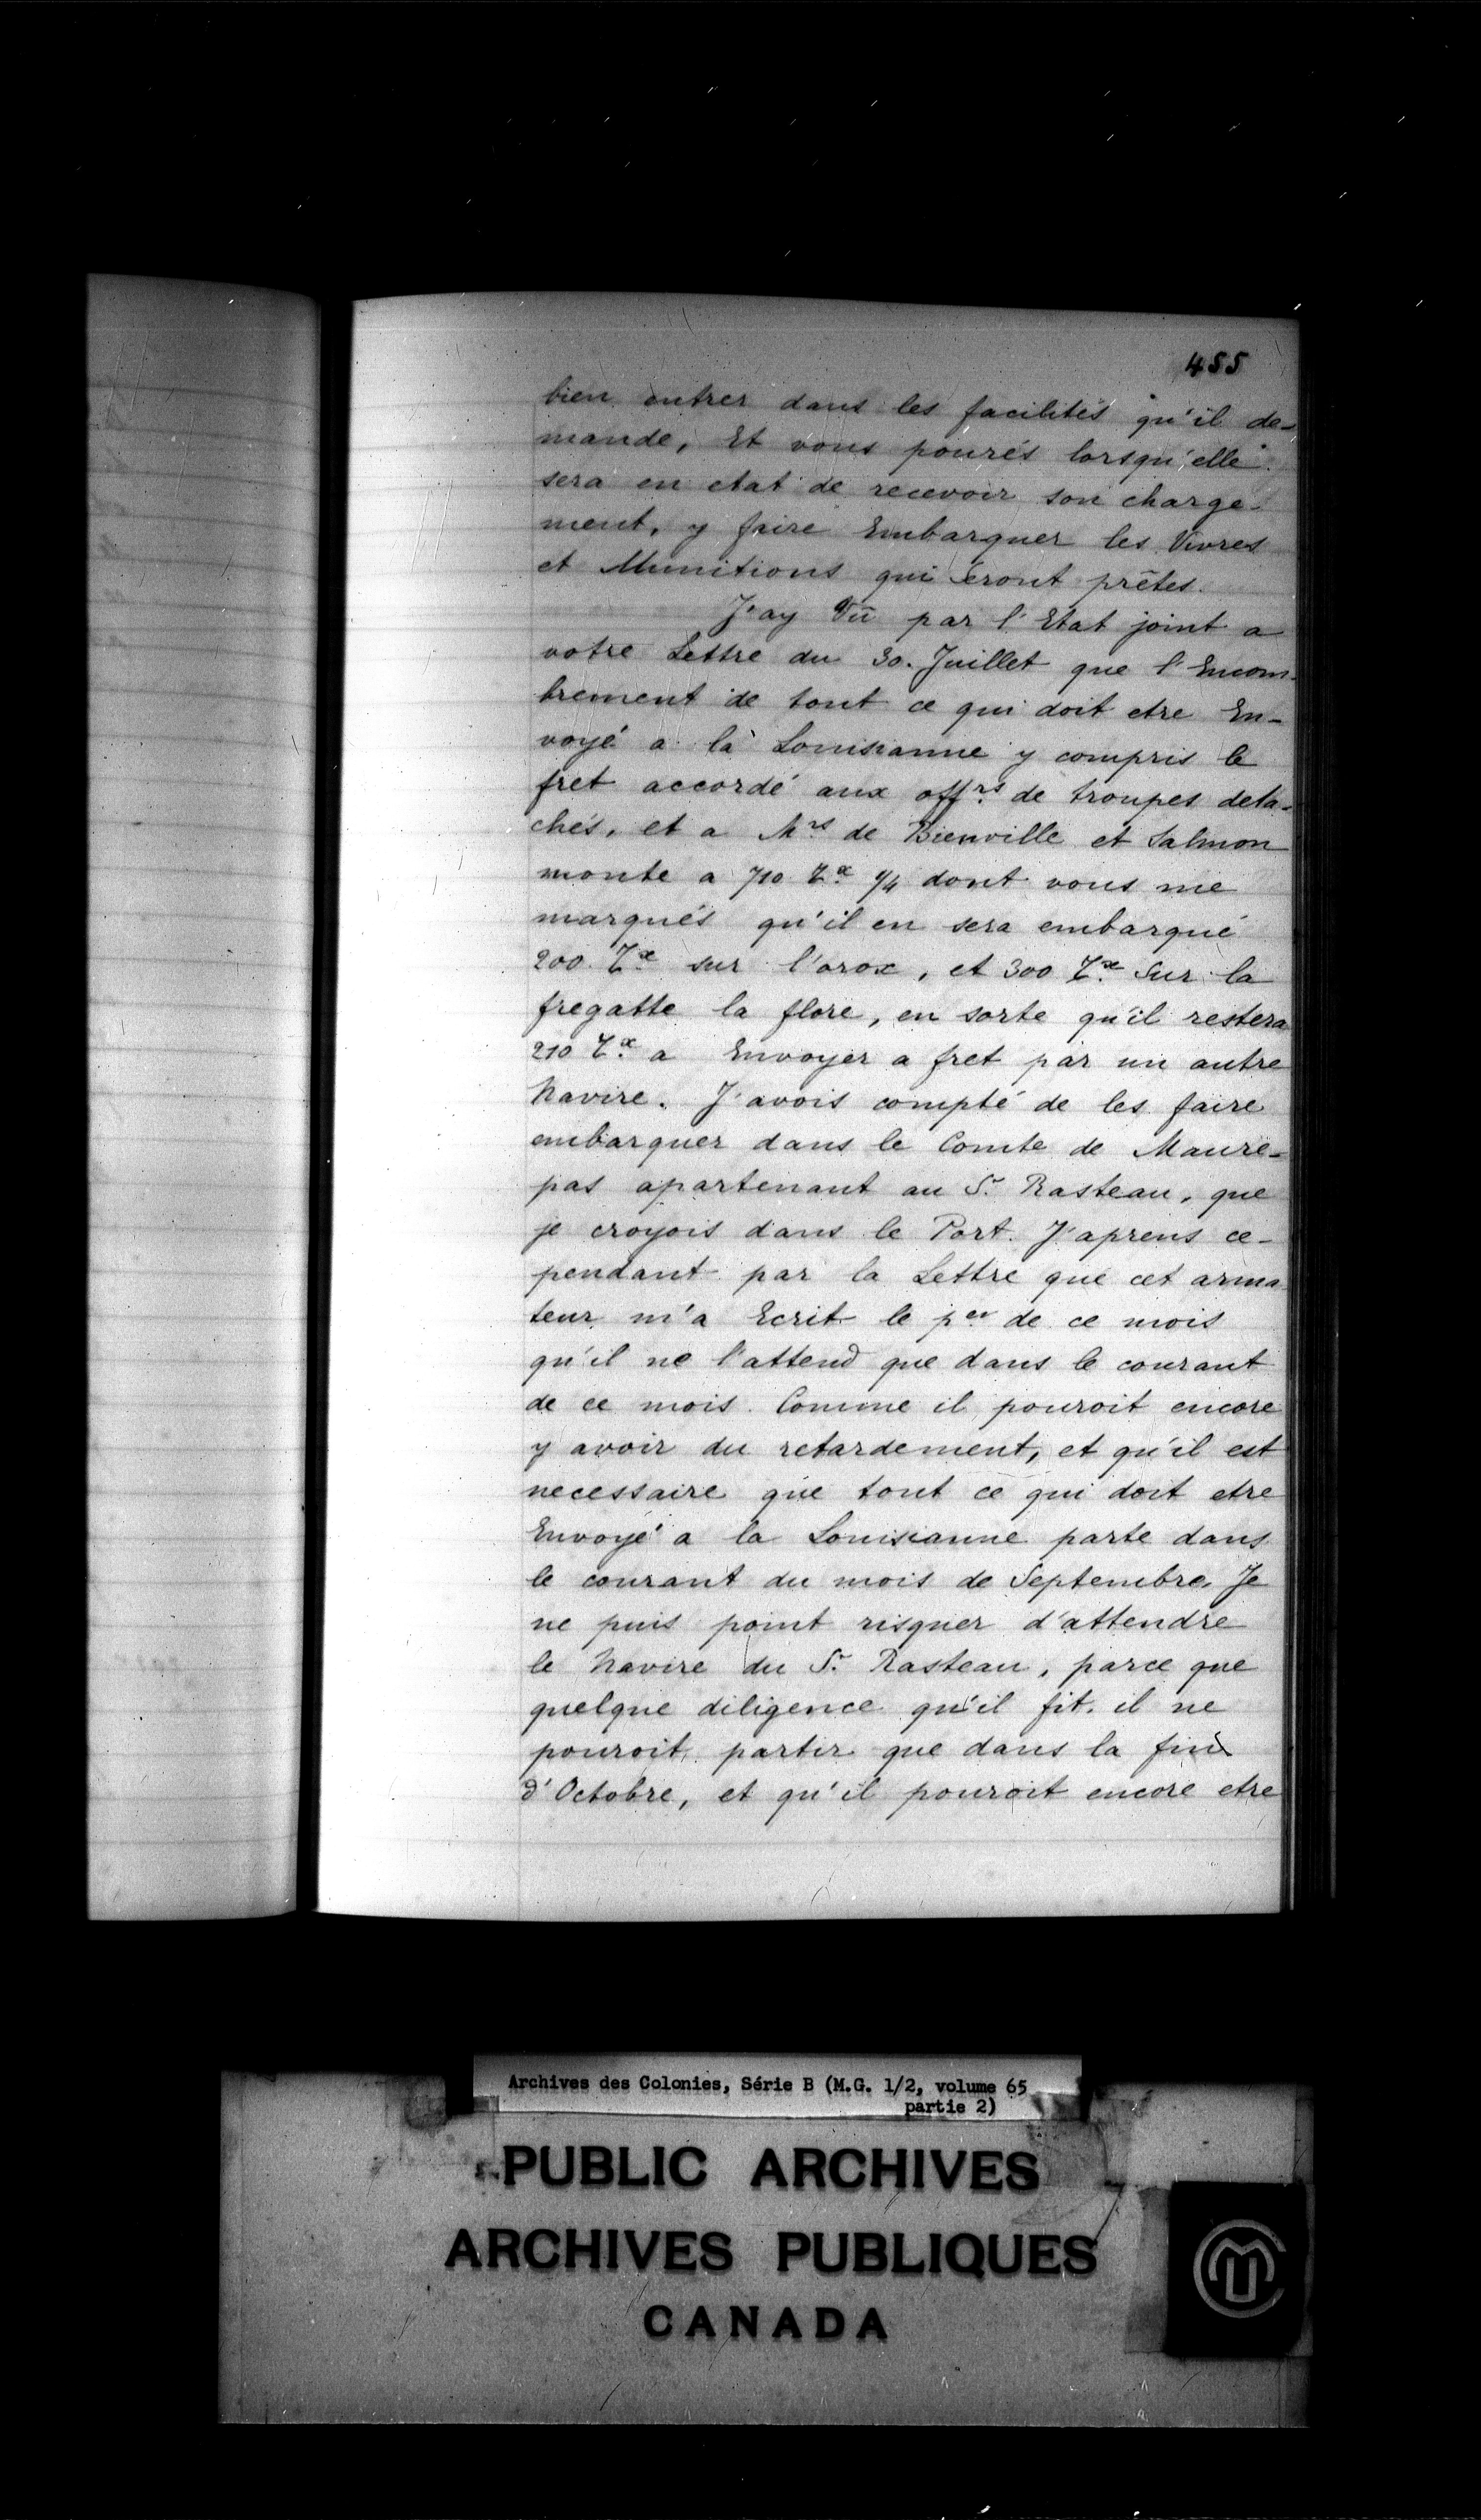 455
bien entrer dans les facilités qu'il de-
mande, Et vous pourés lorsqu'elle
sera en etat de recevoir son charge-
ment, y faire Embarquer les Vivres
et Munitions qui Seront prêtes.
J'ay Vû par l'Etat joint a
votre Lettre du 30. Juillet que l'Encom-
brement de tout ce qui doit etre En-
voyé a la Louisianne y compris le
fret accordé aux offrs de troupes deta-
chés, et a Mrs de Bienville et Salmon
monte a 710 Tx 1/4 dont vous me
marqués qu'il en sera embarqué
200 Tx sur l'orox, et 300 Tx Sur la
fregatte la flore, en sorte qu'il restera
210 Tx a Envoyer a fret par un autre
Navire. J'avois compté de les faire
embarquer dans le Comte de Maure-
pas apartenant au Sr Rasteau, que
je croyois dans le Port. J'aprens ce-
pendant par la Lettre que cet arma-
teur m'a Ecrit le per de ce mois
qu'il ne l'attend que dans le courant
de ce mois. Comme il pouroit encore
y avoir du retardement, et qu'il est
necessaire que tout ce qui doit etre
Envoyé a la Louisianne parte dans
le courant du mois de Septembre, Je
ne puis point risquer d'attendre
le Navire du Sr Rasteau, parce que
quelque diligence qu'il fit, il ne
pouroit partir que dans la fin
d'Octobre, et qu'il pouroit encore etre
Archives des Colonies, Série B (M.G. 1/2, volume 65
partie 2)
PUBLIC ARCHIVES
ARCHIVES PUBLIQUES
CANADA